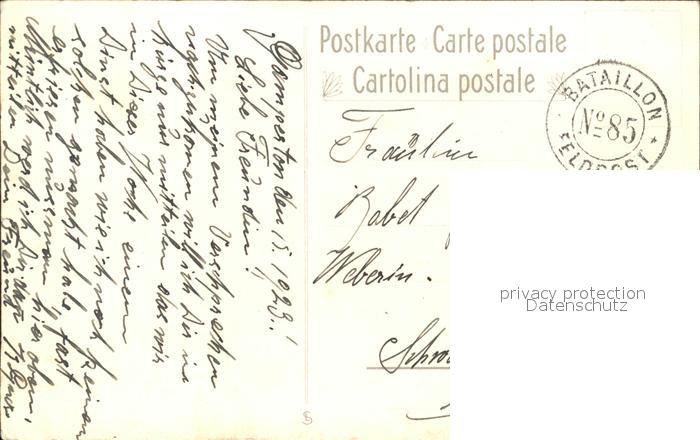 Postkarte Carte postale
Cartolina postale
BATAILLON
No 85
FELDPOST
Fräulein
Babet
Weberin.
privacy protection
Datenschutz
den 15. 1928!
Liebe Freundin!
Von meinem Versprechen
nachzukomen will ich Dir in
kürze nur mitteilen das wir
in Dieser Woche einen
Dinst haben wie ich noch keinen
solchen gemacht habe, fast
erfrieren müss man hier oben,